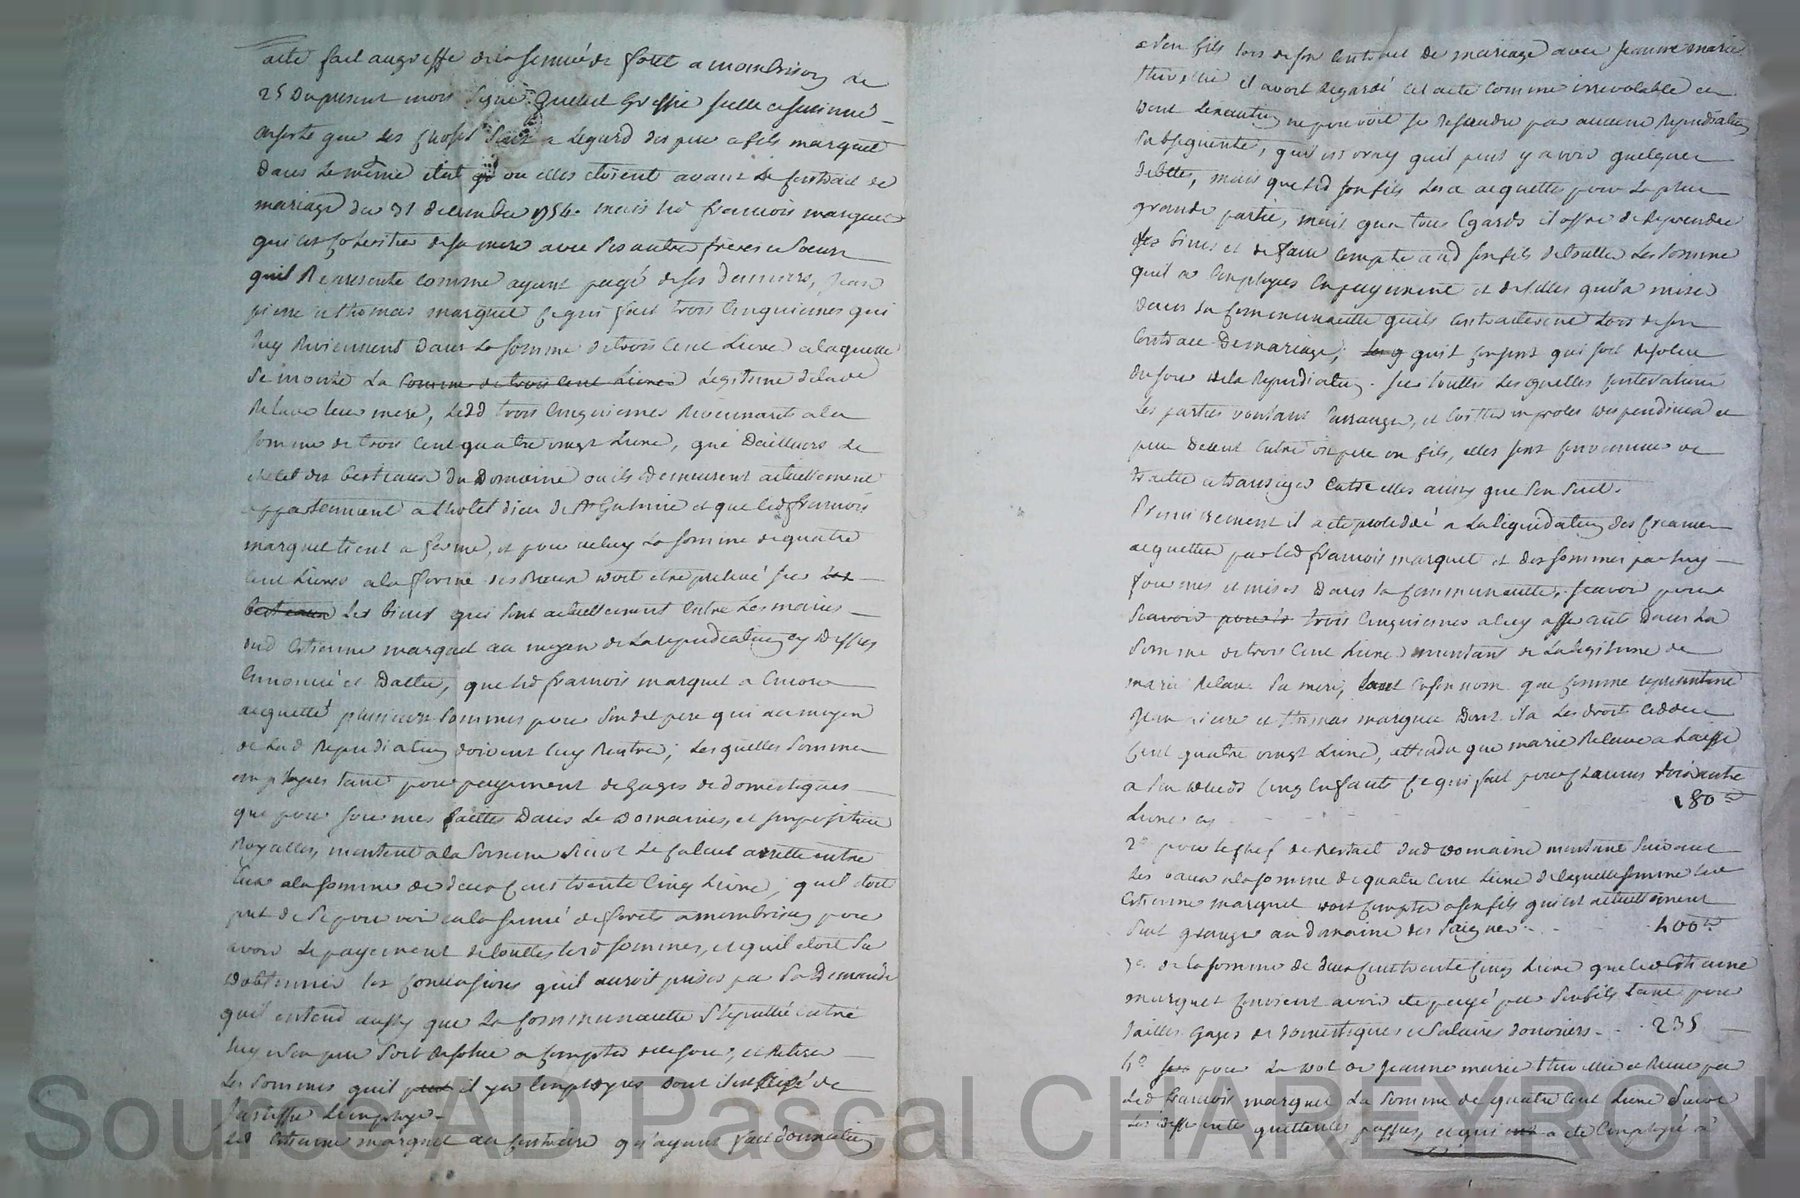 acte fait au greffe de la senné de forét a monbrison le
25 du present mois signé greffie
en sorte que les choses sont a legard des pere et fils marquet
dans le même état ou elles etoient avant le contract de
mariage du 31 decembre 1754. mais led françois marquet
qui est coheritier de sa mere avec ses autre freres et soeur
quil Represente comme ayant payé de ses derniers, Jean
pierre et thomas marquet ce qui fait trois cinquiemes qui
luy Reviennent dans la somme de trois cent Livre a laquelle
se monte La somme de trois cent Livres Legitime de lad
Relave leur mere, lesd trois cinquiemes Revennants a la
somme de cent quatre vingt Livre, que d'ailleurs le
des bestiaux du Domaine ou ils demeurent actuellement
appartennent a lhotel dieu de St et que led françois
marquet tient a ferme, et pour celuy La somme de quatre
cent Livres doit etre prelevé sur les
bestiaux Les biens qui sont actuellement entre Les mains
dud Etienne marquet au moyen de La repudiation cy dessus
ennoncée et Dattée, que led françois marquet a encore
acquetté plusieurs sommes pour sondit pere qui au moyen
de lad Repudiation doivent luy Rentrer; Lesquelles sommes
employes tant pour payement de gages de domestiques
que pour sommes faittes dans Le Domaines, et imposition
Royalles, montent a la somme suivt Le calcul arretté entre
eux a la somme de deux cent trente cinq Livre; quil etoit
pret de se pourvoir en la senné de forets a monbrison pour
avoir Le payement de touttes lesd sommes, et quil etoit sur
d'obtennir les conclusions quil auroit prises par sa demande
quil entend aussy que La communautté stipullée entre
luy et son pere soit Resolue a compter de ce jour, et Retirer
Les sommes quil peut il y a employes dont il est chargé de
justiffier L'employ.
Led Etienne marquet au contraire qu'ayant fait donnation
a son fils lors de son contract de mariage avec jeanne marie
thiollie il avoit Regardé cet acte comme irrevocable et
dont L'execution ne pouvoit se Resoudre par aucune Repudiation
subsequente, quil est vray quil peut y avoir quelques
dettes, mais que led son fils Les a acquettes pour La plus
grande partie, mais qua tous Egards il offre de Reprendre
ses biens et de faire compte aud son fils de touttes Les sommes
quil a Employes en payement et de celles quil a mises
dans La communautte quils contracterent Lors de son
contract de mariage, quil consent qui soit Resolue
du jour de la Repudiation. sur touttes Lesquelles contestations
Les parties voulant s'arranger, et Eviter un proces dispendieux et
peu decent entre un pere un fils, elles sont convenues de
traitter et transiger entre elles ainsy que s'en suit.
Premierement il a ete proceddé a La liquidation des creances
acquettées par led françois marquet et des sommes par luy
fournies et mises dans La communautté, scavoir pour
scavoir pour les trois cinquiemes a luy afferants dans La
somme de trois cent Livre montant de La legitime de
marie Relave sa mere, tant en son nom que comme representant
Jean pierre et thomas marquet Dont il a Les droits ceddes
cent quatre vingt Livre, attendu que marie Relave a Laissé
a son deceds cinq enfants ce qui fait pour chacuns soixante
Livre cy 180#
2° pour le chef de bestail dud domaine montant suivant
Les baux a la somme de quatre cent Livre de laquelle somme led
Etienne marquet doit compter a son fils qui est actuellement
seul granger au domaine des saignes 400#
3° de la somme de deux cent trente cinq Livre que led Etienne
marquet convient avoir ete payé par son fils tant pour
tailles gages de domestiques et salaires d'ouvriers 235
4° pour La dot de Jeanne marie thiollie et Reçue par
Led françois marquet La somme de quatre cent Livre suivt
Les differentes quittances passées, et qui a ete employé a
Source AD Pascal CHAREYRON